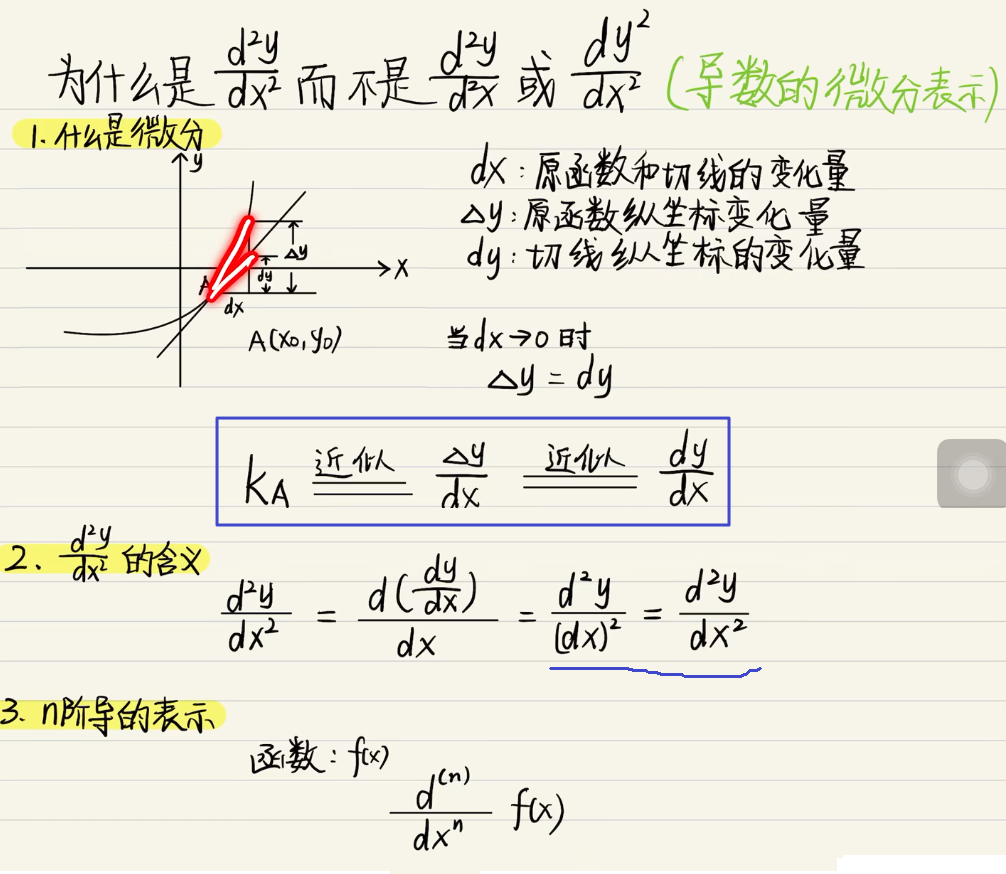 为什么是 d²y/dx² 而不是 d²y/d²x 或 dy²/dx² (导数的微分表示)
1. 什么是微分
y
dx : 原函数和切线的变化量
△y : 原函数纵坐标变化量
dy : 切线纵坐标的变化量
△y
dy
x
A
dx
A(x₀, y₀)
当dx→0时
△y = dy
k_A 近似 △y/dx 近似 dy/dx
2、d²y/dx² 的含义
d²y/dx² = d(dy/dx)/dx = d²y/(dx)² = d²y/dx²
3. n阶导的表示
函数 : f(x)
d⁽ⁿ⁾/dxⁿ f(x)